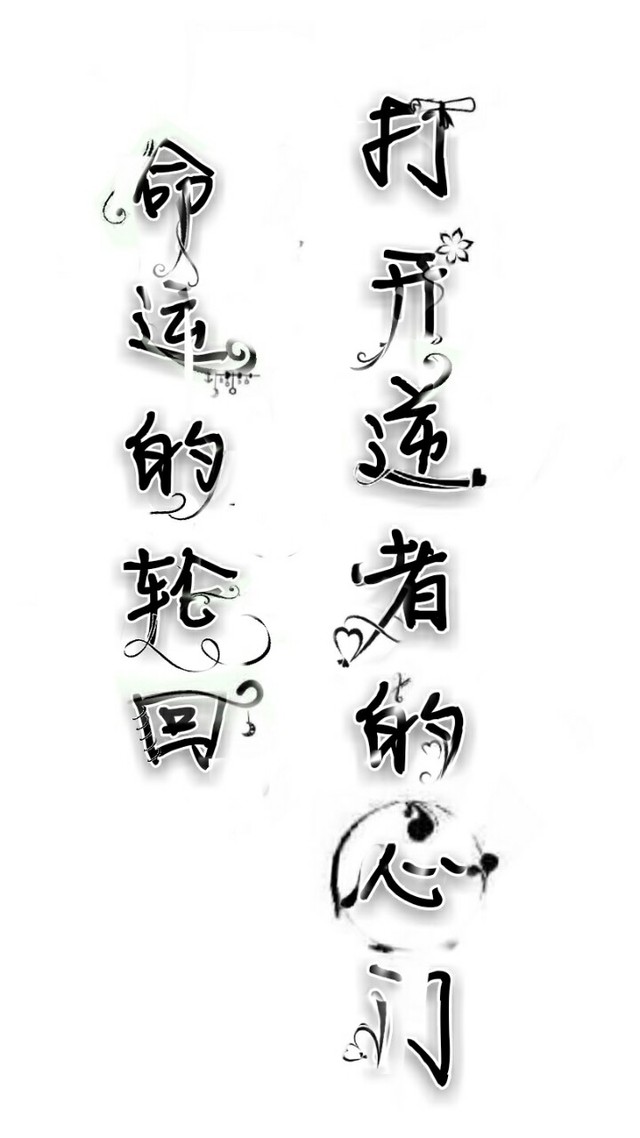 打开逆者的心门
命运的轮回